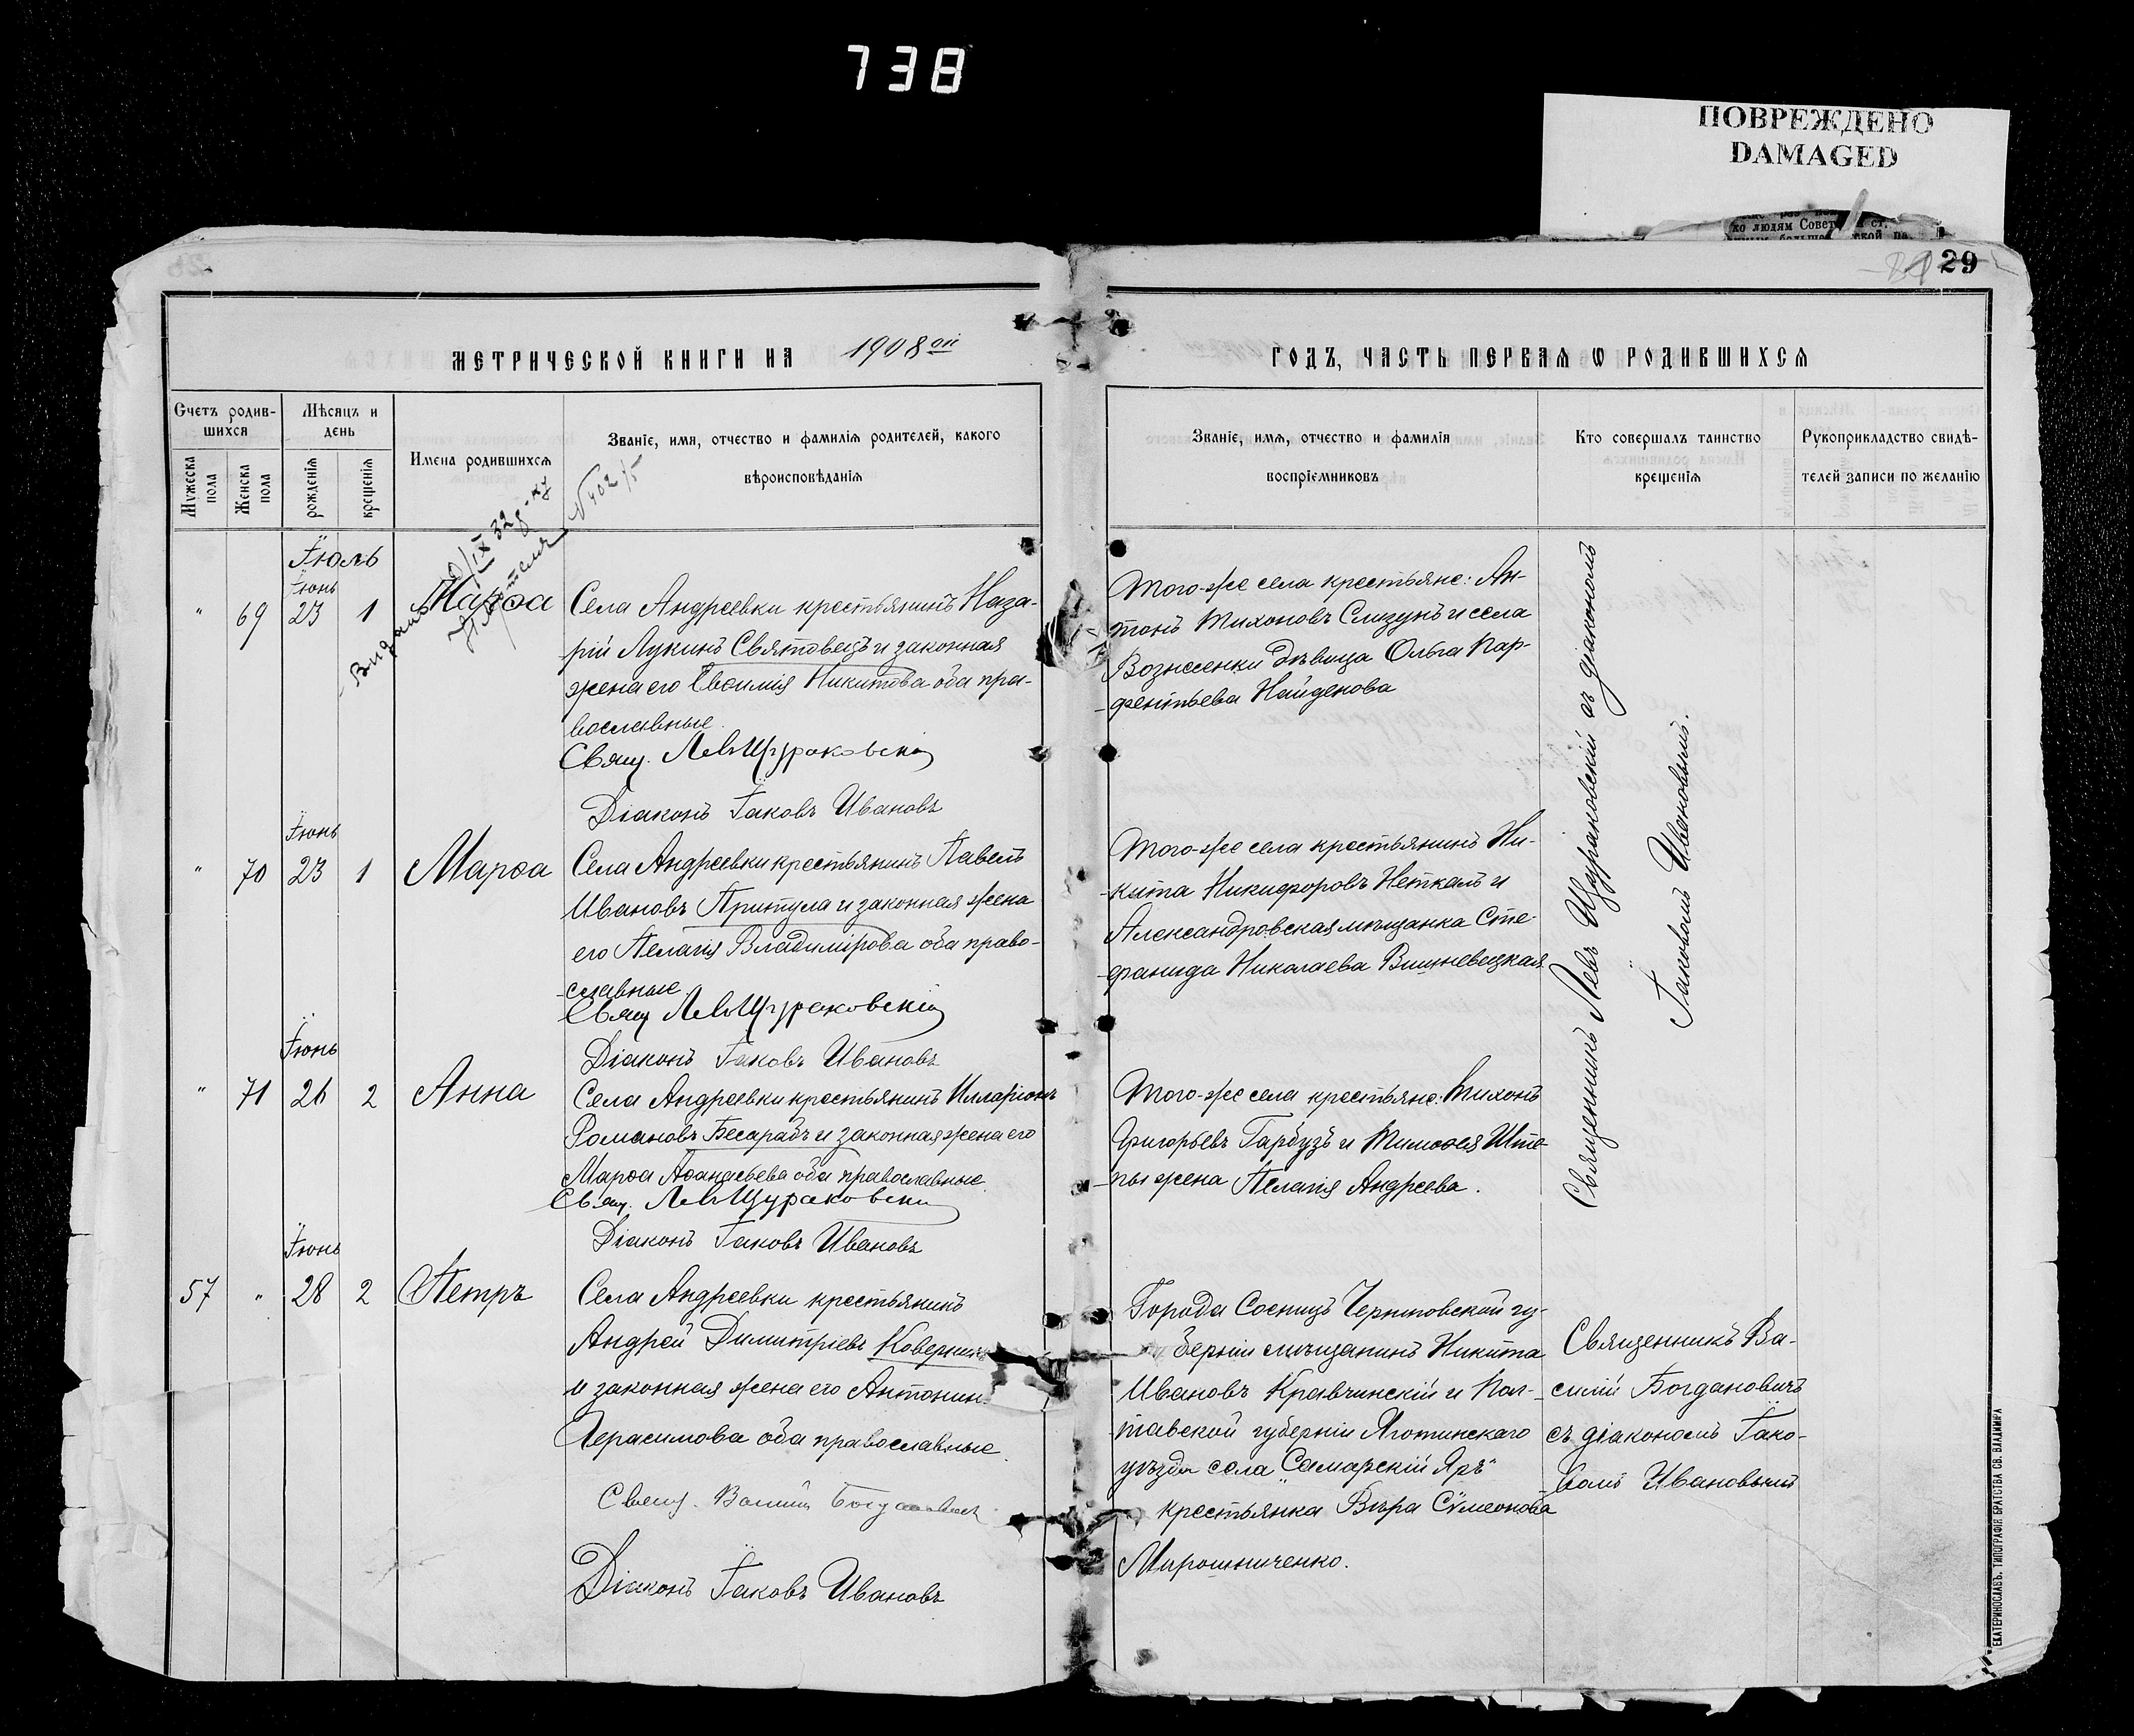 738
ПОВРЕЖДЕНО
DAMAGED
ко людям Совет
29
МЕТРИЧЕСКОЙ КНИГИ НА 1908 ой
ГОДЪ, ЧАСТЬ ПЕРВАЯ Ѡ РОДИВШИХСЯ
Счетъ родив-
шихся
Мужеска пола
Женска пола
Мѣсяцъ и
день
рожденія
крещенія
Имена родившихся
Званіе, имя, отчество и фамилія родителей, какого
вѣроисповѣданія
Званіе, имя, отчество и фамилія
воспріемниковъ
Кто совершалъ таинство
крещенія
Рукоприкладство свидѣ-
телей записи по желанію
Іюль
Іюнь
" 69 23 1 Марѳа
Села Андреевки крестьянинъ Наза-
рій Лукинъ Святовецъ и законная
жена его Евѳимія Никитова оба пра-
вославные.
Свящ. Левъ Щураковскій
Діаконъ Іаковъ Ивановъ
Того-же села крестьяне: Ан-
тонъ Тихоновъ Слизунъ и села
Вознесенки дѣвица Ольга Пар-
фентьева Найденова
Іюнь
" 70 23 1 Марѳа
Села Андреевки крестьянинъ Павелъ
Ивановъ Притула и законная жена
его Пелагія Владимірова оба право-
славные.
Свящ Левъ Щураковскій
Діаконъ Іаковъ Ивановъ
Того-же села крестьянинъ Ни-
кита Никифоровъ Неткалъ и
Александровская мѣщанка Сте-
фанида Николаева Вишневецкая
Іюнь
" 71 26 2 Анна
Села Андреевки крестьянинъ Илларіонъ
Романовъ Бесарабъ и законная жена его
Марѳа Аѳанасьева оба православные.
Свящ. Левъ Щураковскій
Діаконъ Іаковъ Ивановъ
Того-же села крестьяне: Тихонъ
Григорьевъ Гарбузъ и Тимоѳея Ште-
пы жена Пелагія Андреева.
Священникъ Левъ Щураковскій съ діакономъ
Іаковомъ Ивановымъ.
Іюнь
57 " 28 2 Петръ
Села Андреевки крестьянинъ
Андрей Димитріевъ
и законная жена его Антонин
Герасимова оба православные.
Свящ. Василій Богдановичъ
Діаконъ Іаковъ Ивановъ
Города Сосницъ Черниговской гу-
берніи мѣщанинъ Никита
Ивановъ Кравчинскій и Пол-
тавской губерніи
уѣзда села „Самарскій Яръ"
крестьянка Вѣра Сѵмеонова
Мирошниченко.
Священникъ Ва-
силій Богдановичъ
съ діакономъ Іако-
вомъ Ивановымъ
ЕКАТЕРИНОСЛАВЪ. ТИПОГРАФІЯ БРАТСТВА СВ. ВЛАДИМІРА